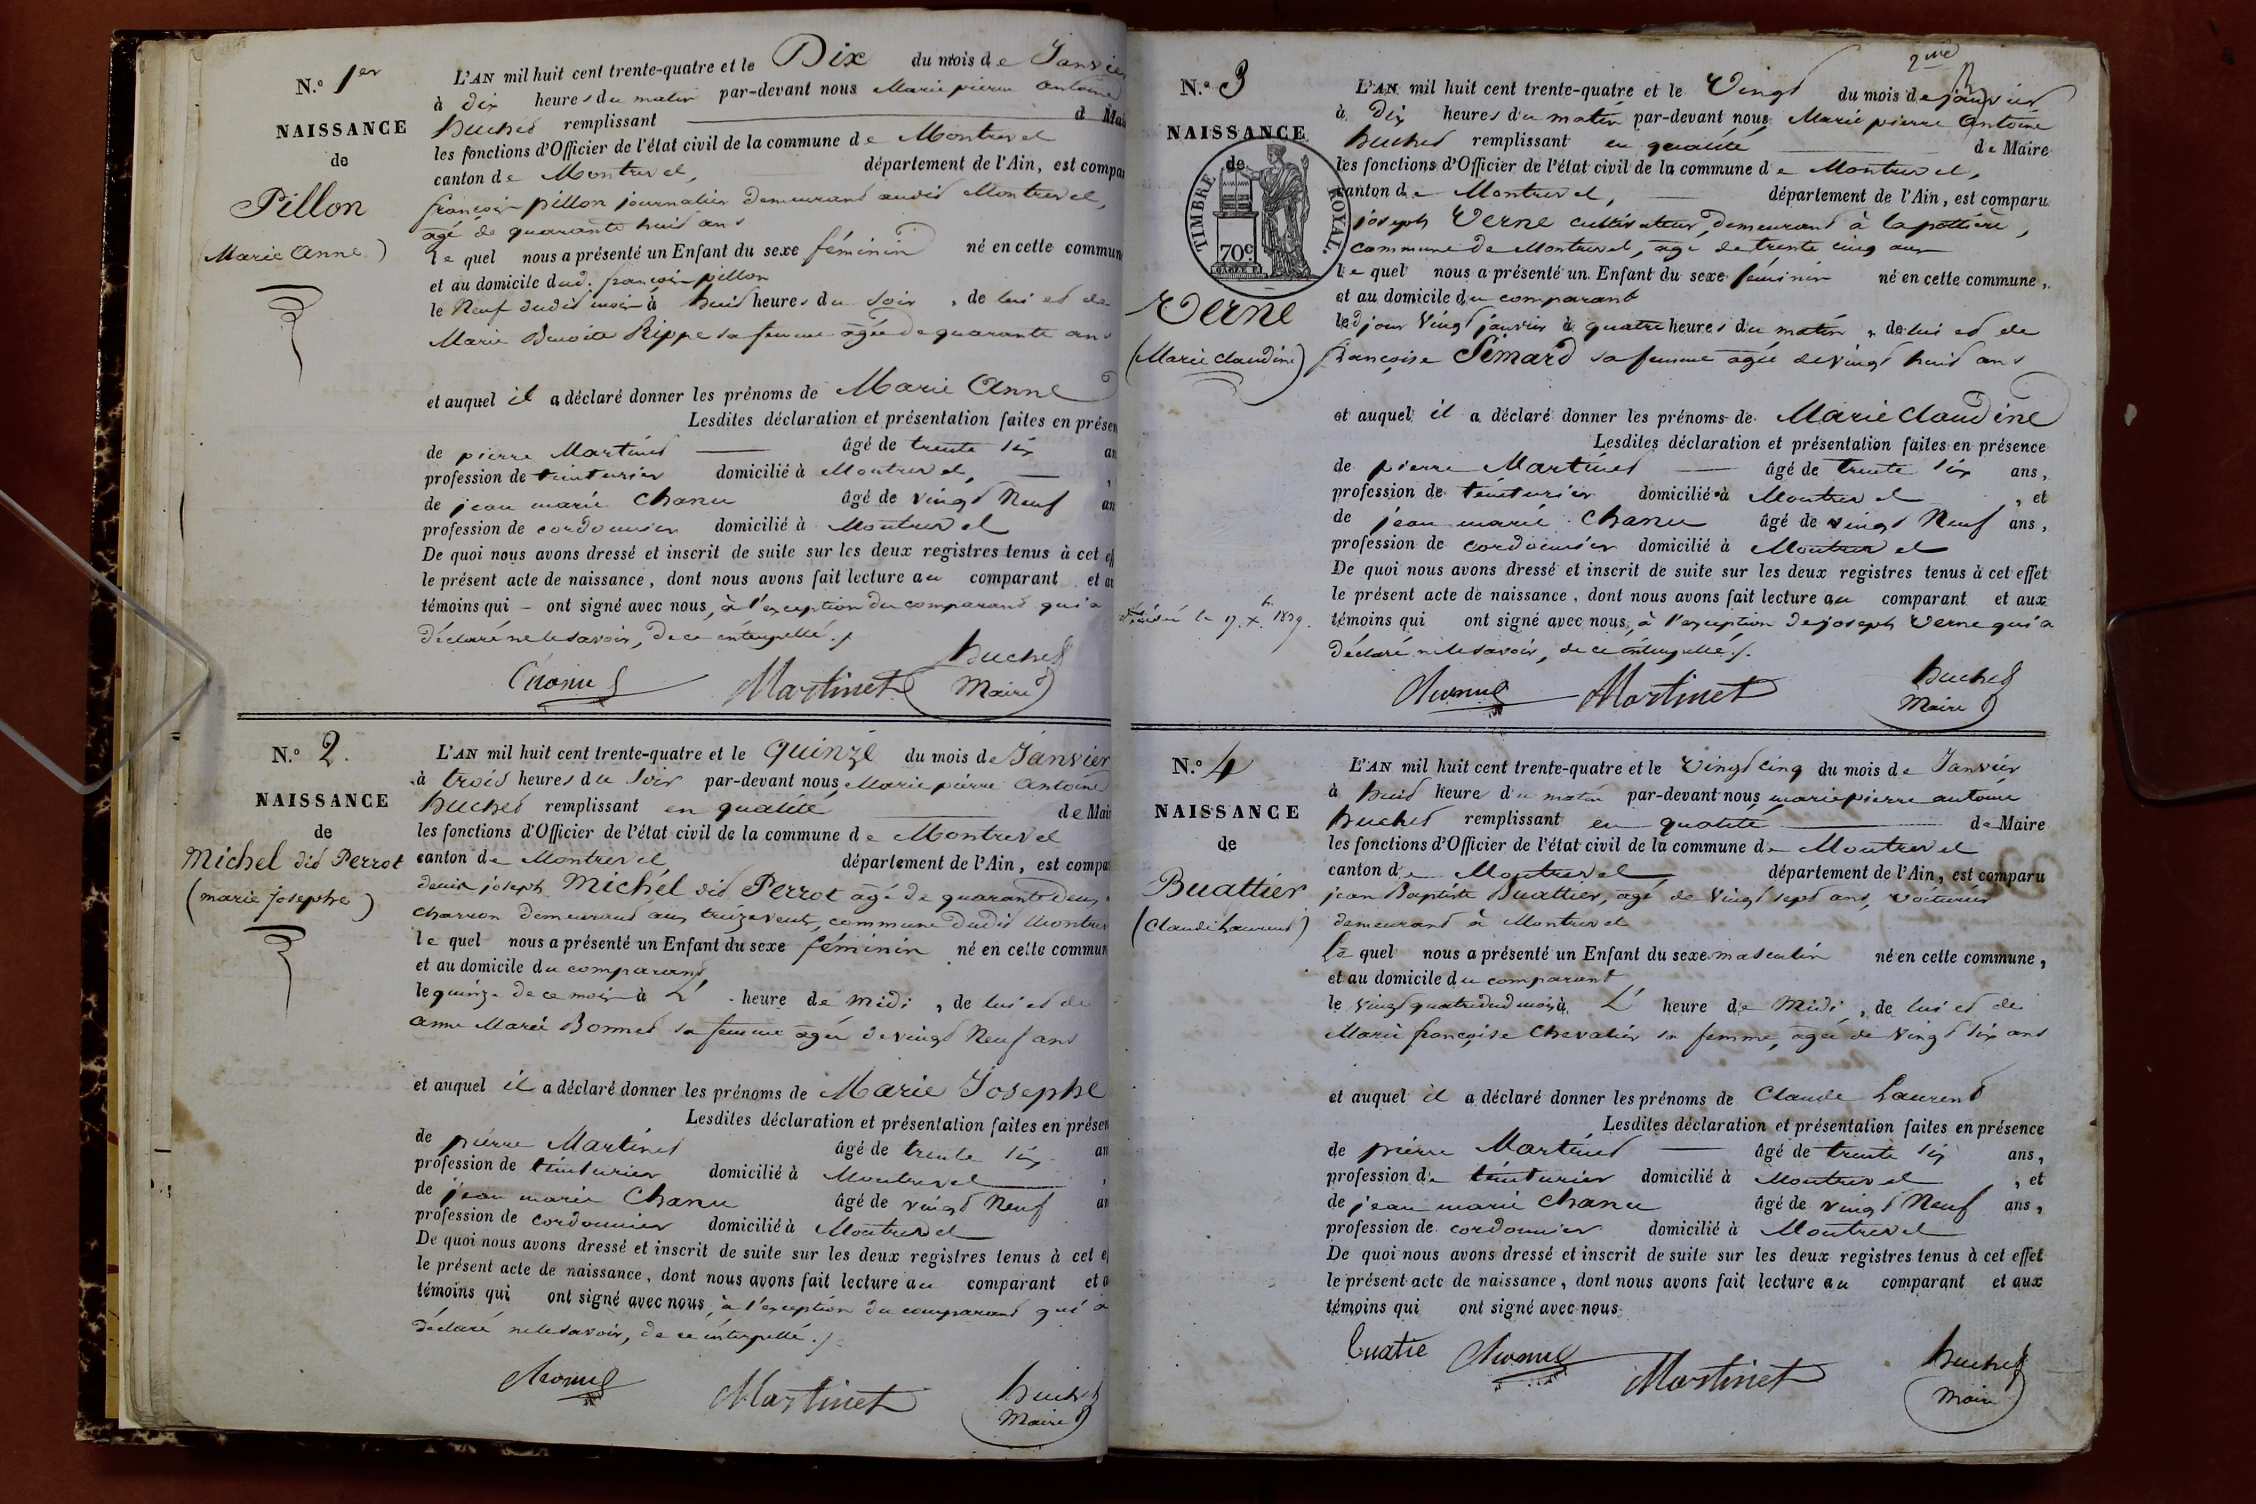 N.o 1er
NAISSANCE
de
Pillon
(Marie Anne)
L'AN mil huit cent trente-quatre et le Dix du mois de Janvier
à dix heures du matin par-devant nous Marie pierre antoine
huchet remplissant d Mai
les fonctions d'Officier de l'état civil de la commune de Montrevel
canton de Montrevel, département de l'Ain, est compar
françois pillon journalier demeurant audit Montrevel,
agé de quarante huit ans
le quel nous a présenté un Enfant du sexe féminin né en cette commun
et au domicile dud. françois pillon
le Neuf dudit mois à huit heures du soir, de lui et de
Marie Benoite Rippe sa femme agée de quarante ans
et auquel il a déclaré donner les prénoms de Marie Anne
Lesdites déclaration et présentation faites en présen
de pierre Martinet âgé de trente six an
profession de teinturier domicilié à Montrevel,
de jean marie Chanu âgé de vingt Neuf an
profession de cordonnier domicilié à Montrevel
De quoi nous avons dressé et inscrit de suite sur les deux registres tenus à cet eff
le présent acte de naissance, dont nous avons fait lecture au comparant et au
témoins qui ont signé avec nous, à l'exception du comparant qui a
déclaré ne le savoir, de ce interpellé ./.
Martinet huchet
Maire
N.o 2.
NAISSANCE
de
Michel dit Perrot
(marie Josephe)
L'AN mil huit cent trente-quatre et le quinze du mois de Janvier
à trois heures du soir par-devant nous Marie pierre antoine
huchet remplissant en qualité de Mair
les fonctions d'Officier de l'état civil de la commune de Montrevel
canton de Montrevel département de l'Ain, est compar
denis joseph Michel dit Perrot agé de quarante deux
charron demeurant aux treizevents, commune dudit Montrev
le quel nous a présenté un Enfant du sexe féminin né en cette commun
et au domicile du comparant
le quinze de ce mois à L' heure de midi, de lui et de
anne Marie Bonnet sa femme agée de vingt Neuf ans
et auquel il a déclaré donner les prénoms de Marie Josephe
Lesdites déclaration et présentation faites en présen
de pierre Martinet âgé de trente six an
profession de teinturier domicilié à Montrevel
de jean marie Chanu âgé de vingt Neuf an
profession de cordonnier domicilié à Montrevel
De quoi nous avons dressé et inscrit de suite sur les deux registres tenus à cet e
le présent acte de naissance, dont nous avons fait lecture au comparant et a
témoins qui ont signé avec nous, à l'exception du comparant qui a
déclaré ne le savoir, de ce interpellé ./.
Martinet huchet
Maire
2me
N.o 3
NAISSANCE
de
TIMBRE ROYAL.
70c
Verne
(Marie claudine)
L'AN mil huit cent trente-quatre et le Vingt du mois de janvier
à Dix heures du matin par-devant nous Marie pierre Antoine
huchet remplissant en qualité de Maire
les fonctions d'Officier de l'état civil de la commune de Montrevel,
canton de Montrevel, département de l'Ain, est comparu
joseph Verne cultivateur, demeurant à la pottière,
commune de Montrevel, agé de trente cinq ans
le quel nous a présenté un Enfant du sexe féminin né en cette commune,
et au domicile du comparant
led jour Vingt janvier à quatre heures du matin, de lui et de
françoise Simard sa femme agée de vingt huit ans
et auquel il a déclaré donner les prénoms de Marie claudine
Lesdites déclaration et présentation faites en présence
de pierre Martinet âgé de trente six ans,
profession de teinturier domicilié à Montrevel, et
de jean marie Chanu âgé de vingt Neuf ans,
profession de cordonnier domicilié à Montrevel
De quoi nous avons dressé et inscrit de suite sur les deux registres tenus à cet effet
le présent acte de naissance, dont nous avons fait lecture au comparant et aux
témoins qui ont signé avec nous, à l'exception de joseph Verne qui a
déclaré ne le savoir, de ce interpellé ./.
le 17 Xbr 1839.
Martinet huchet
Maire
N.o 4
NAISSANCE
de
Buattier
(Claude Laurent)
L'AN mil huit cent trente-quatre et le Vingt cinq du mois de Janvier
à huit heure du matin par-devant nous marie pierre antoine
huchet remplissant en qualité de Maire
les fonctions d'Officier de l'état civil de la commune de Montrevel
canton de Montrevel département de l'Ain, est comparu
jean Baptiste Buattier, agé de Vingt sept ans, voiturier
demeurant à Montrevel
le quel nous a présenté un Enfant du sexe masculin né en cette commune,
et au domicile du comparant
le vingt quatre dud mois à L' heure de Midi, de lui et de
Marie françoise Chevalier sa femme, agée de Vingt six ans
et auquel il a déclaré donner les prénoms de Claude Laurent
Lesdites déclaration et présentation faites en présence
de pierre Martinet âgé de trente six ans,
profession de teinturier domicilié à Montrevel, et
de jean marie Chanu âgé de vingt Neuf ans,
profession de cordonnier domicilié à Montrevel
De quoi nous avons dressé et inscrit de suite sur les deux registres tenus à cet effet
le présent acte de naissance, dont nous avons fait lecture au comparant et aux
témoins qui ont signé avec nous
Martinet huchet
Maire